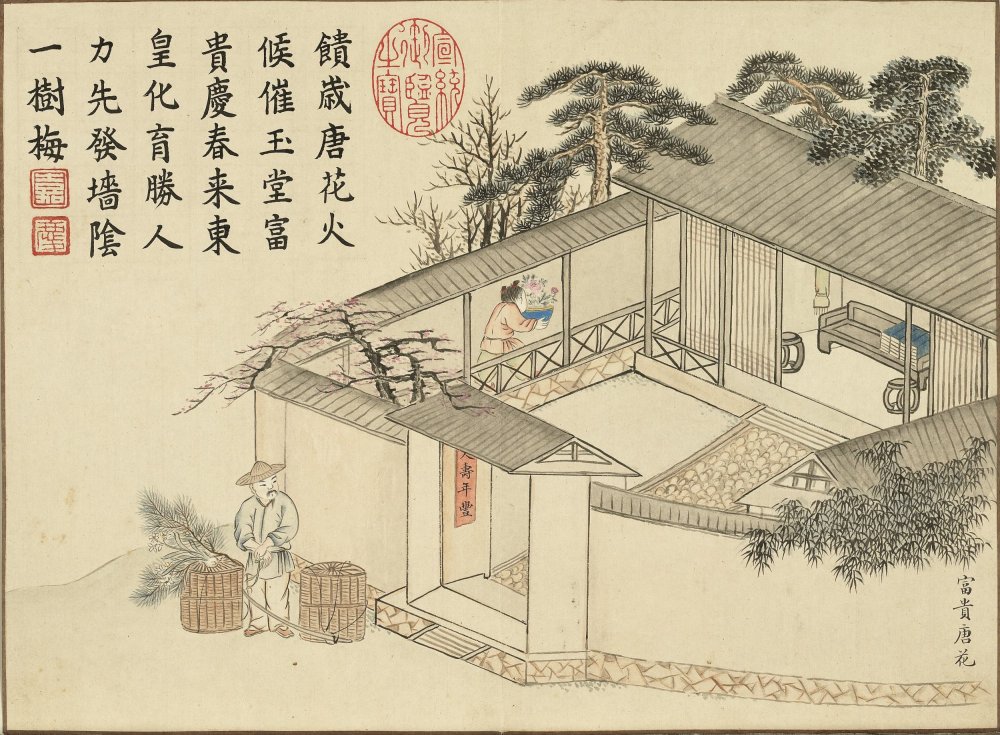 宣統御覽之寶
饋歲唐花火
候催玉堂富
貴慶春来東
皇化育勝人
力先發墻陰
一樹梅
嘉
慶
人壽年豐
富貴唐花